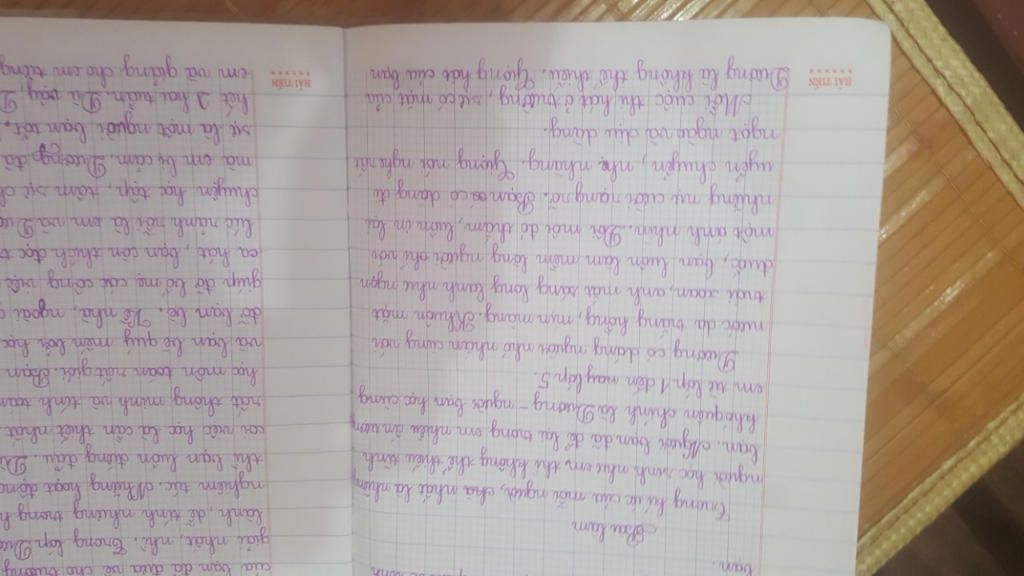 bạn.
Bài làm
Trong kí ức của mỗi người, chắc nhất là những
người học sinh như em thì không thể thiếu hình
bạn. Người bạn đã để lại trong em nhiều ấn tượng
khó quên chính là Dương - người bạn học cùng
em từ lớp 1 đến nay lớp 5.
Dương có dáng người nhỏ nhắn cùng với
nước da trắng hồng, mịn màng. Khuôn mặt
trái xoan, ánh mắt sáng long lanh như ngọn
đuốc, bạn luôn làm mềm lòng người chỉ với
một ánh nhìn. Đôi môi đỏ thắm, luôn
những nụ cười rạng rỡ. Bạn có dáng đi
uyển chuyển, nhẹ nhàng. Giọng nói nghe rất
ngọt ngào và dịu dàng.
Mỗi cuộc thi hát ở trường, sự có mặt của
Dương là không thể thiếu. Giọng hát của bạn
HẢI TIẾN
của bạn đã đưa về cho trường
giải nhất, nhì. Trong lớp
lành, dễ tính nhưng trong
nghiêm túc. Những hoạt động
thì bạn luôn đứng đầu.
coi việc học là cần thiết nhất
rất thông minh và tính toán
học môn toán rất giỏi. Bạn
và bạn bè quý mến bởi học
đỡ bạn bè. Về nhà, ngoài
giúp đỡ bố mẹ các công việc
ca hát, bạn còn thích đọc
lúc rảnh rỗi là em và
chuyện học tập, tâm sự
mà em bị cảm. Dương đã
sự là một người bạn tốt.
hết 2 hai tuần. Dù vậy
em và giảng cho em từng
HẢI TIẾN